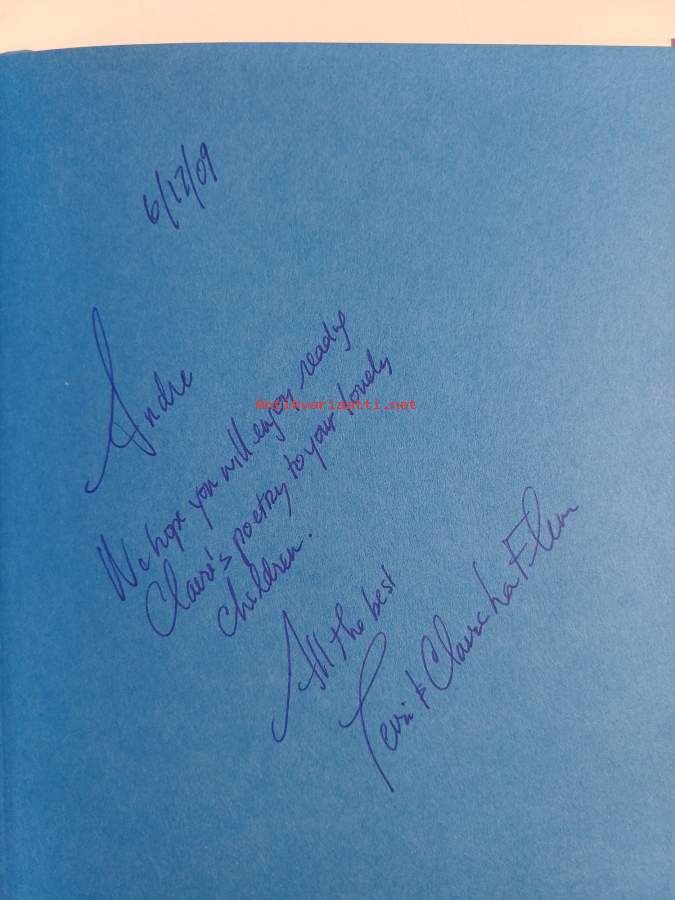 6/17/09
Andre
We hope you will enjoy reading
Claire's poetry to your lovely
children.
All the best
& Claire La Fleur
Antikvariaatti.net